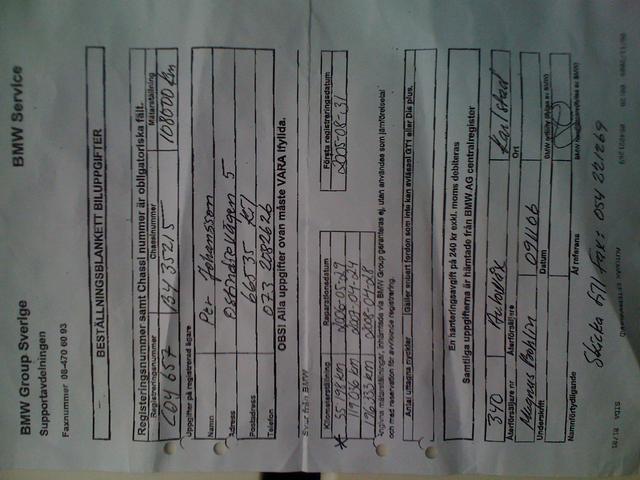 BMW Group Sverige
BMW Service
Supportavdelningen
Faxnummer 08-470 60 93
BESTÄLLNINGSBLANKETT BILUPPGIFTER
Registreringsnummer samt Chassi nummer är obligatoriska fält.
Registreringsnummer Chassinummer Mätarställning
108000 km
Uppgifter på registrerad ägare
Namn Per Johansson
Adress 5
Postadress 66535 Kil
Telefon 073 2082626
OBS! Alla uppgifter ovan måste VARA ifyllda.
Svar från BMW
Kilometerställning Reparationsdatum Första registreringsdatum
* 55 198 km 2006-05-29 2005-08-31
119 096 km 2007-04-24
176 333 km 2008-04-28
Angivna mätarställningar, inhämtade via BMW Group garanteras ej, utan användas som jämförelsetal
och med reservation för avvikande registrering.
Antal utlagna nycklar Gäller endast fordon som inte kan avläsas i GT1 eller Dis plus.
En hanteringsavgift på 240 kr exkl. moms debiteras
Samtliga uppgifterna är hämtade från BMW AG centralregister
340 Karlstad
Återförsäljare nr Återförsäljare Ort
Magnus 091106
Underskrift Datum
Namnförtydligande Är referens
Skicka till Fax: 054 221269